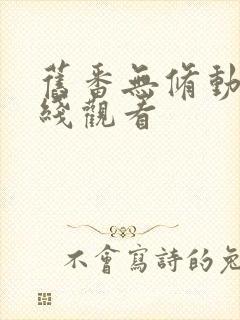 舊番無脩動
綫觀看
不會寫詩的兔